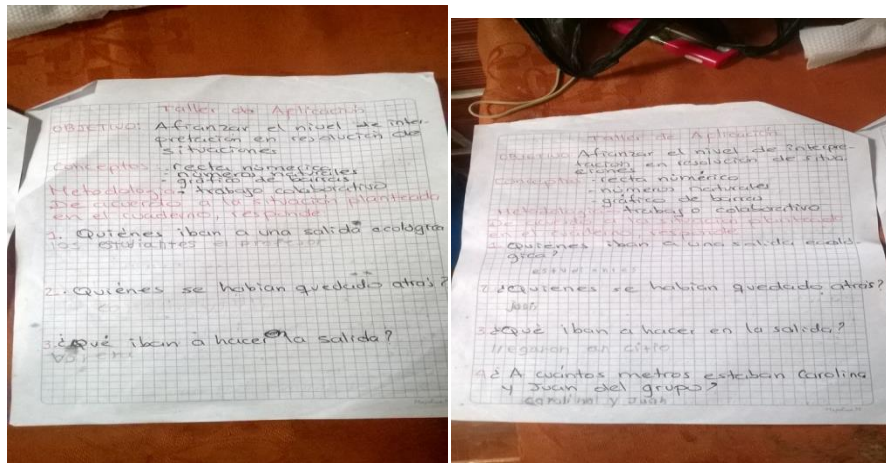 Taller de Aplicación
OBJETIVO: Afianzar el nivel de inter-
pretación en resolución de
situaciones
Conceptos: - recta númerico
- números naturales
- gráfico de barras
Metodología: - trabajo colaborativo
De acuerdo a la situación planteado
en el cuaderno, responde
1. Quiénes iban a una salida ecológica
los estudiantes el profesor
2. Quiénes se habian quedado atrás?
3. ¿Qué iban a hacer en la salida?
Taller de Aplicación
OBJETIVO: Afianzar el nivel de interpre-
tacion en resolución de situa-
ciones
Conceptos: - recta númerico
- números naturales
- gráfico de barras
Metodología: trabajo colaborativo
De acuerdo a la situación planteado
en el cuaderno responde
1. Quiénes iban a una salida ecoló-
gica?
2. ¿Quiénes se habian quedado atrás?
3. ¿Qué iban a hacer en la salida?
llegaron an citio
4. ¿A cuántos metros estaban Carolina
y Juan del grupo?